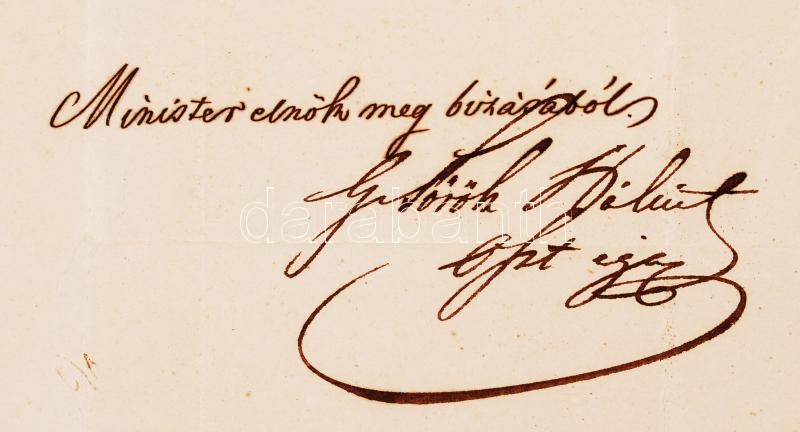 Minister elnök meg bizásából.
G. Török Bálint
darabanth